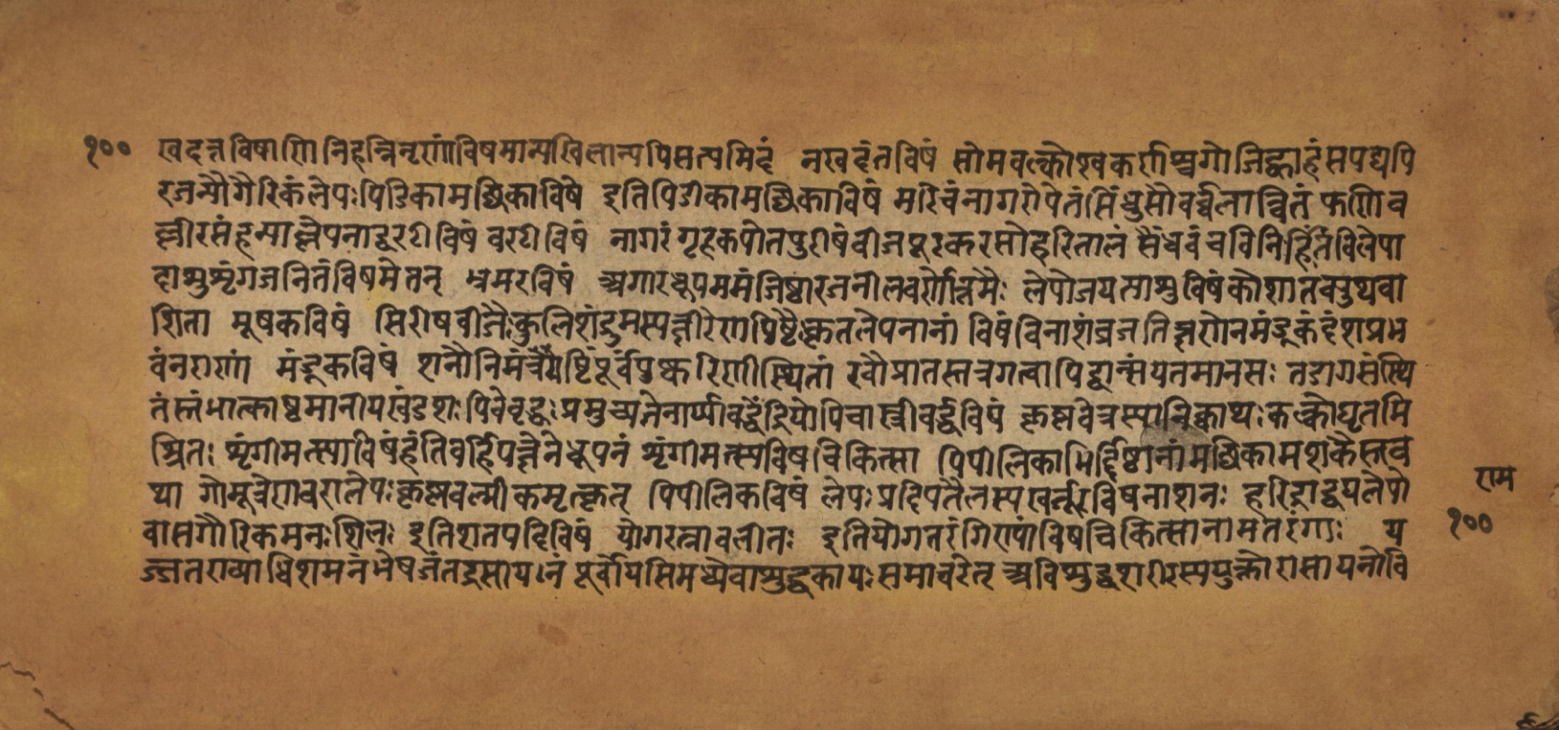 १०० खदन्नविषाणि निहन्तिनृणांविषमान्यखिलान्यपिसत्यमिदं नखदंतविषं सोमवल्कोश्वकर्णश्चगोजिह्वाहंसपद्यपि
रजन्यौगैरिकंलेपःपिडिकामक्षिकाविषे इतिपिडीकामक्षिकाविषं मरिचंनागरोपेतंसिंधुसौवर्चलान्वितं फणिव
ल्लीरसंहन्याल्लेपनाद्वरटीविषं वरटीविषं नागरंगृहकपोतपुरीषंबीजपूरकरसोहरितालं सैंधवंचविनिर्हितंविलेपा
दाशुभृंगजनितंविषमेतत् भ्रमरविषं अगारधूपममंजिष्ठारजनीलवणोत्तमैः लेपोजयत्याशुविषंकोशातक्युथवा
शिता मूषकविषं सिरीषबीजैःकुलिशंद्रुमस्यक्षीरेणपिष्टैःकृतलेपनानां विषंविनाशंव्रजतिक्षणेनमंडूकदंशप्रभ
वंनराणां मंडूकविषं शनौनिमंत्र्यैर्यष्टिंपूर्वंपुष्करिणीस्थितां रवौप्रातस्तत्रगत्वापिद्वान्संयतमानसः तडागसंस्थि
तंस्तंभात्काष्ठमानीयखंडशः पिबेवृद्धःप्रमुच्यतेनार्प्पाबद्धेंद्रियोपिचा स्त्रीबर्द्धविषं कृष्णवेत्रस्यनिक्वाथःकल्कोघृतमि
श्रितः शृंगीमत्स्याविषंहंतिबर्हिपक्षेनधूपनं शृंगीमत्स्यविषचिकित्सा पिपीलिकाभिर्द्दष्टानांमक्षिकामशकैस्तव
था गोमूत्रेणवरालेपःकृष्णवल्मीकमृत्कृत् पिपीलिकविषं लेपःप्रदिपतैलस्यखर्जूरविषनाशनः हरिद्राद्वयलेपो
राम
वासगौरिकमनःशिलः इतिशतपदिविषं योगरत्नावलीतः इतियोगतरंगिण्यांविषचिकित्सानामतरंगः य
१००
ज्जराव्याधिशमनंभेषजंतद्रसायनं पूर्वेवयसिमध्येवाशुद्धकायःसमाचरेत् अविशुद्धशरीरस्ययुक्तोरासायनोवि